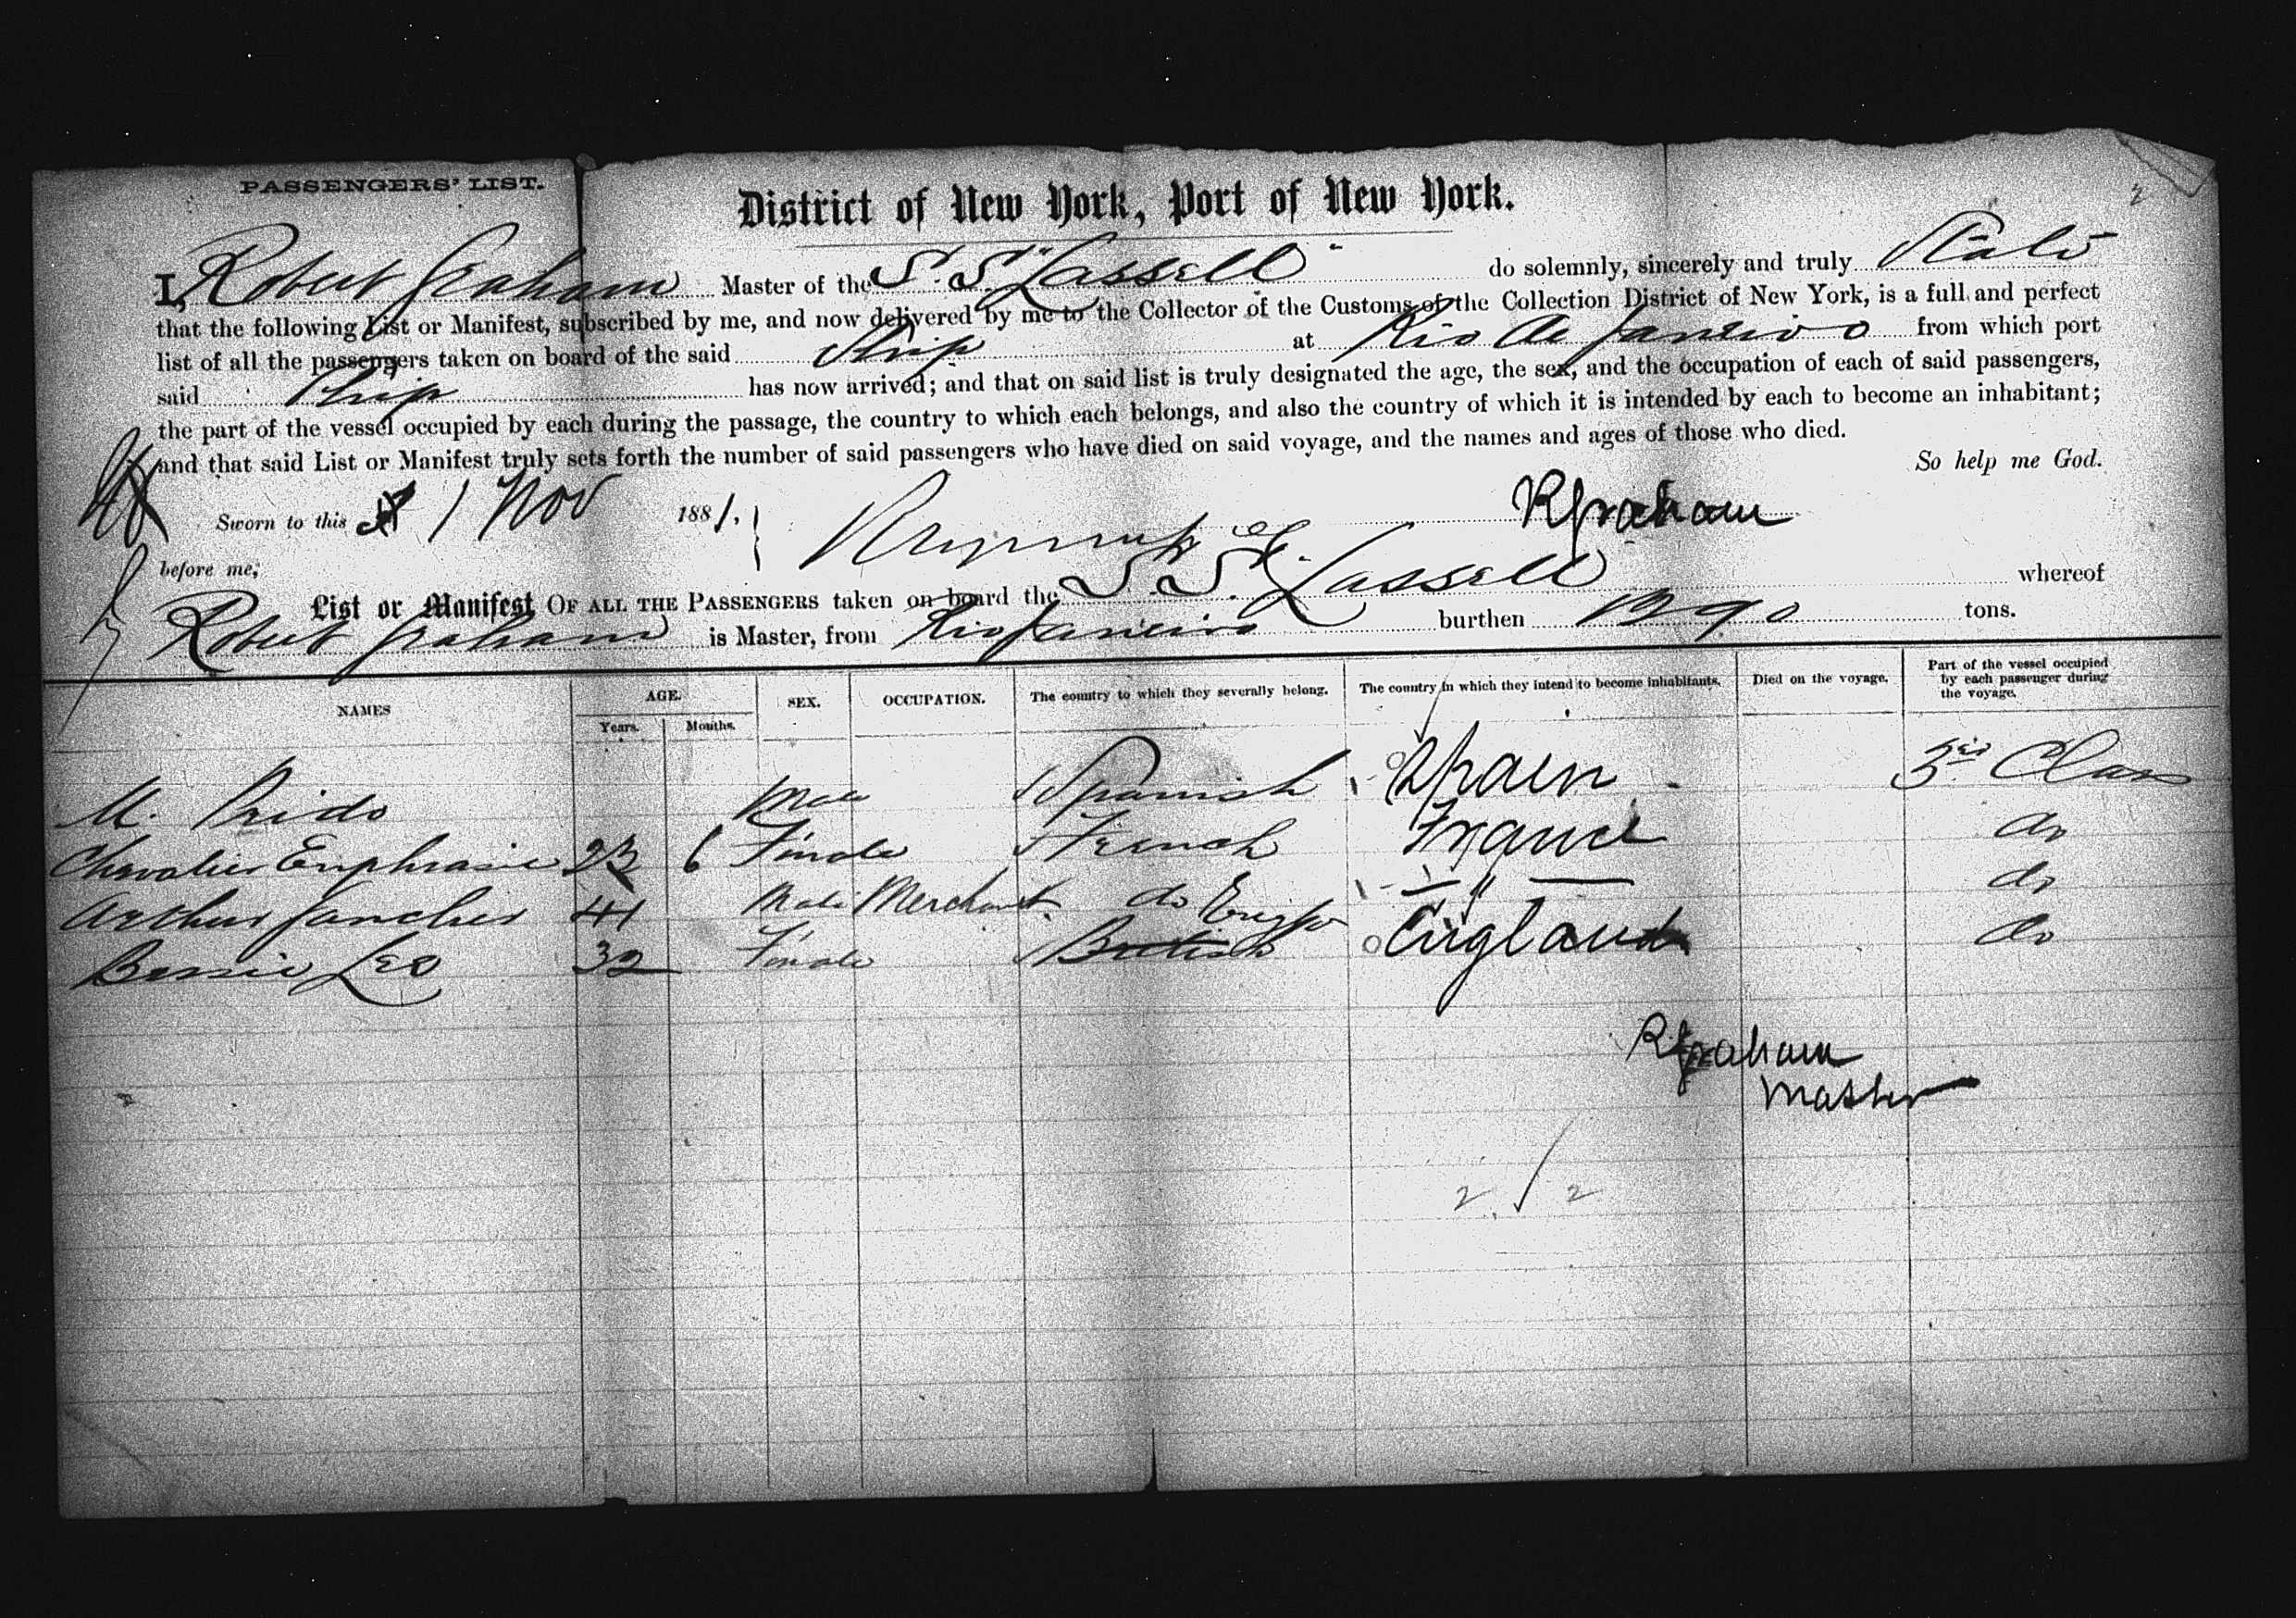 PASSENGERS' LIST.
2
District of New York, Port of New York.
I, Robert Graham Master of the S. S. "Lassell" do solemnly, sincerely and truly State
that the following List or Manifest, subscribed by me, and now delivered by me to the Collector of the Customs of the Collection District of New York, is a full and perfect
list of all the passengers taken on board of the said Ship at Rio de Janeiro from which port
said Ship has now arrived; and that on said list is truly designated the age, the sex, and the occupation of each of said passengers,
the part of the vessel occupied by each during the passage, the country to which each belongs, and also the country of which it is intended by each to become an inhabitant;
and that said List or Manifest truly sets forth the number of said passengers who have died on said voyage, and the names and ages of those who died.
So help me God.
Sworn to this 1 Nov 1881. RGraham
before me,
List or Manifest OF ALL THE PASSENGERS taken on board the S. S. Lassell whereof
Robert Graham is Master, from Rio Janeiro burthen tons.
NAMES AGE. Years. Months. SEX. OCCUPATION. The country to which they severally belong. The country in which they intend to become inhabitants. Died on the voyage. Part of the vessel occupied by each passenger during the voyage.
M. Prido Male Spanish Spain 3rd Class
Chevalier Euphrasie 23 6 Female French France do
Arthur Sanches 41 Male Merchant do " do
Bessie Leo 32 Female British England do
RGraham
Master
2 / 2